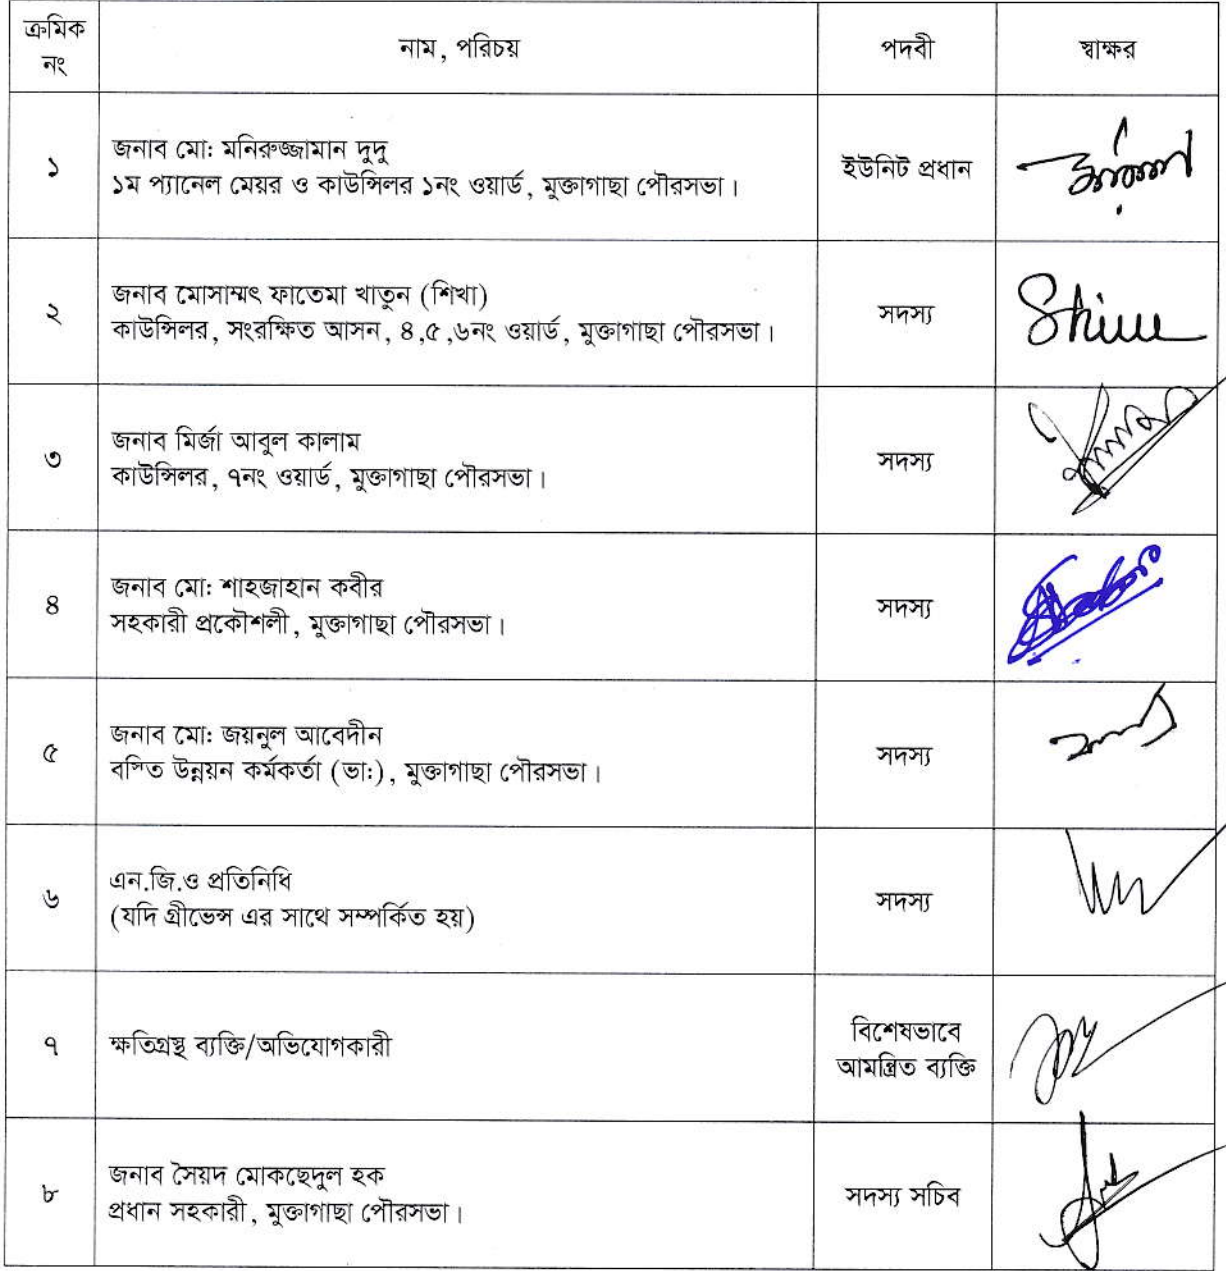 ক্রমিক নং | নাম, পরিচয় | পদবী | স্বাক্ষর
১ | জনাব মো: মনিরুজ্জামান দুদু
১ম প্যানেল মেয়র ও কাউন্সিলর ১নং ওয়ার্ড, মুক্তাগাছা পৌরসভা। | ইউনিট প্রধান
২ | জনাব মোসাম্মৎ ফাতেমা খাতুন (শিখা)
কাউন্সিলর, সংরক্ষিত আসন, ৪,৫,৬নং ওয়ার্ড, মুক্তাগাছা পৌরসভা। | সদস্য
৩ | জনাব মির্জা আবুল কালাম
কাউন্সিলর, ৭নং ওয়ার্ড, মুক্তাগাছা পৌরসভা। | সদস্য
৪ | জনাব মো: শাহজাহান কবীর
সহকারী প্রকৌশলী, মুক্তাগাছা পৌরসভা। | সদস্য
৫ | জনাব মো: জয়নুল আবেদীন
বস্তি উন্নয়ন কর্মকর্তা (ভা:), মুক্তাগাছা পৌরসভা। | সদস্য
৬ | এন.জি.ও প্রতিনিধি
(যদি গ্রীভেন্স এর সাথে সম্পর্কিত হয়) | সদস্য
৭ | ক্ষতিগ্রস্থ ব্যক্তি/অভিযোগকারী | বিশেষভাবে
আমন্ত্রিত ব্যক্তি
৮ | জনাব সৈয়দ মোকছেদুল হক
প্রধান সহকারী, মুক্তাগাছা পৌরসভা। | সদস্য সচিব